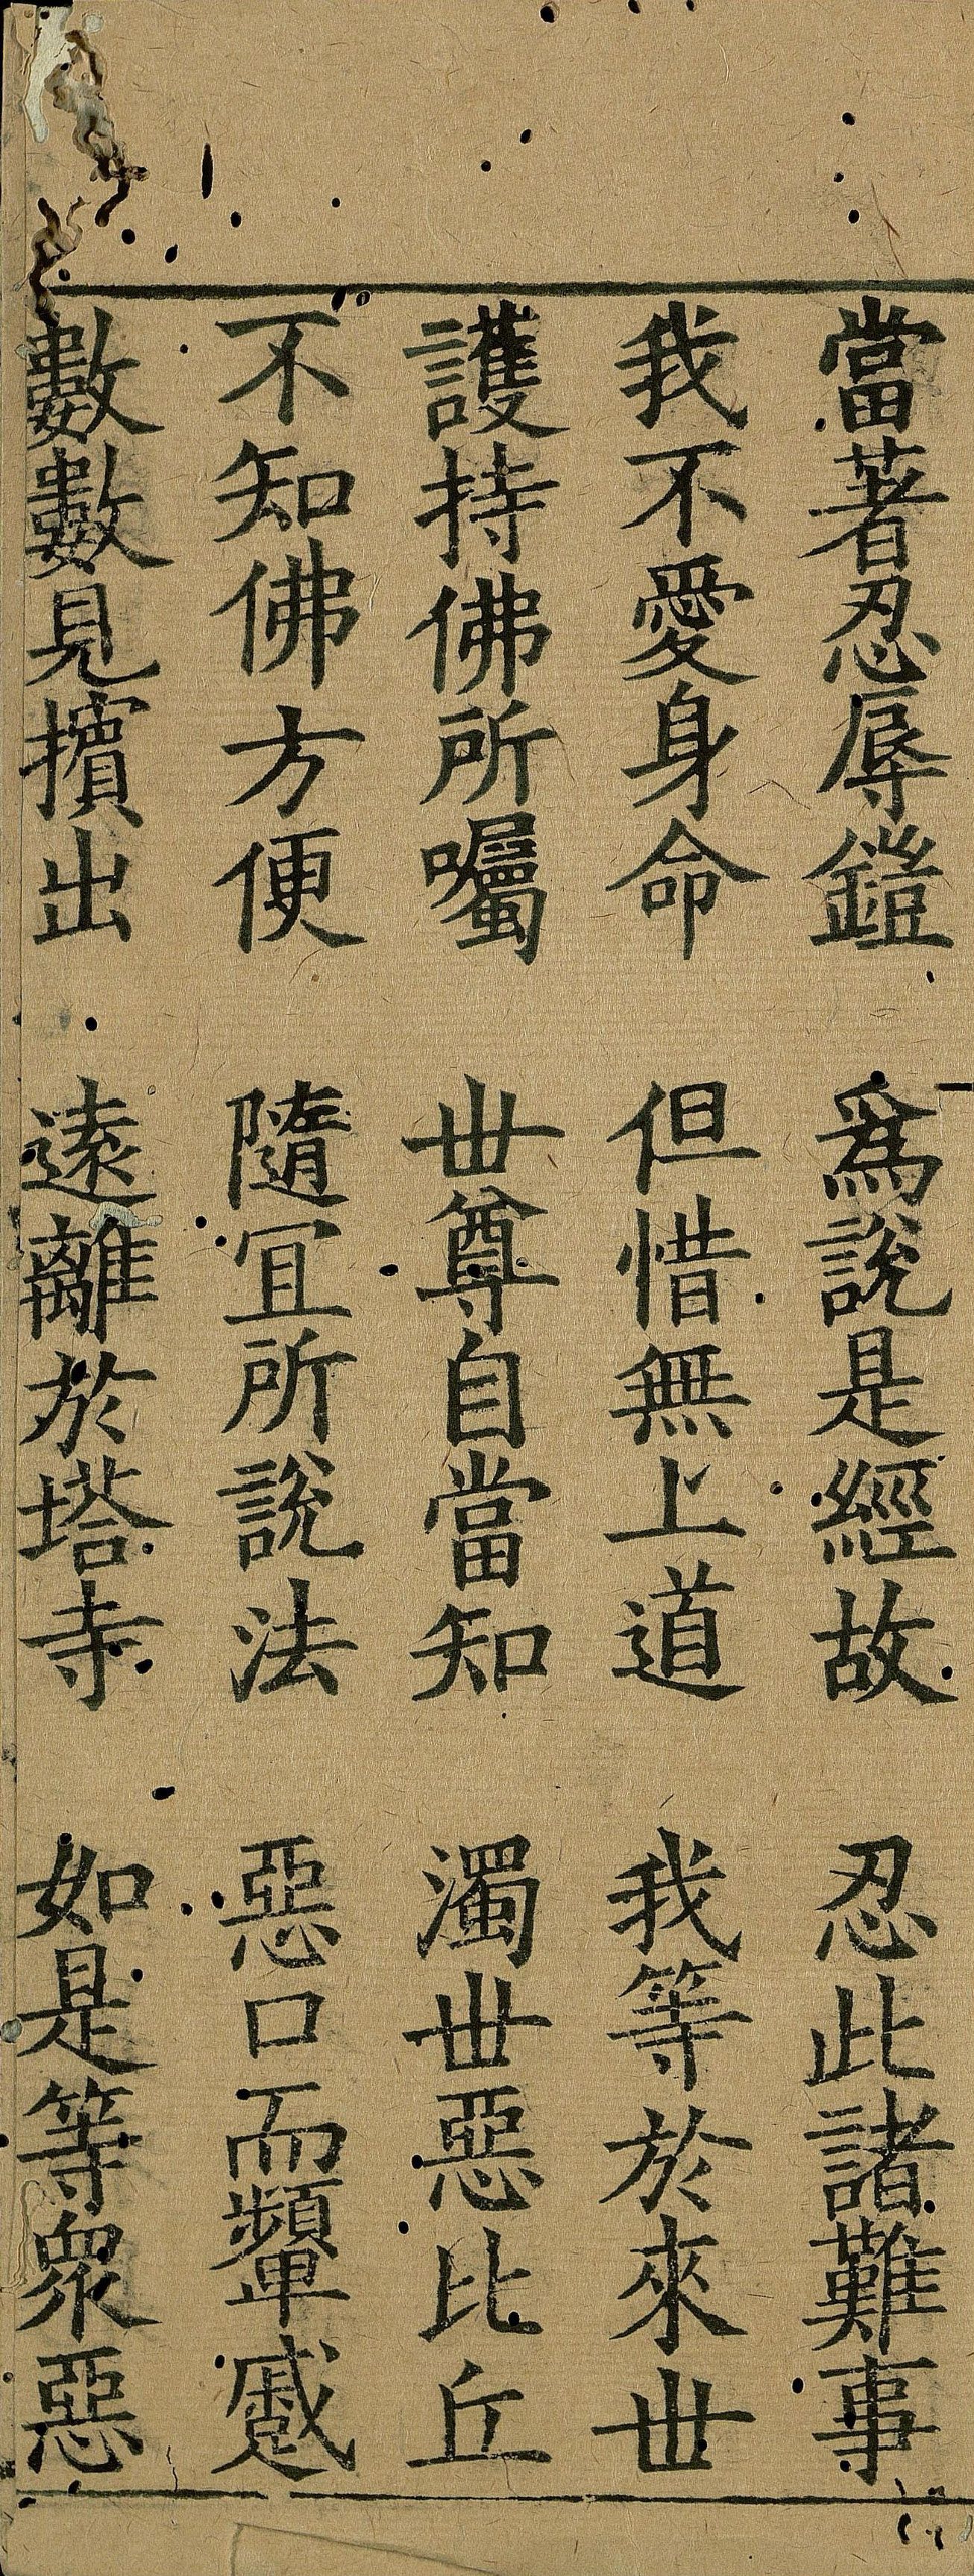 當著忍辱鎧　為說是經故　忍此諸難事
我不愛身命　但惜無上道　我等於來世
護持佛所囑　世尊自當知　濁世惡比丘
不知佛方便　隨宜所說法　惡口而顰蹙
數數見擯出　遠離於塔寺　如是等衆惡